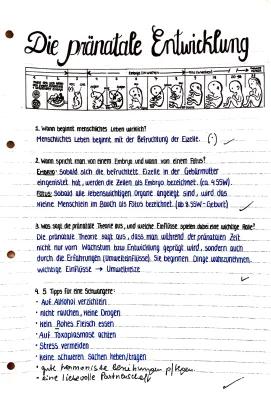 Die pränatale Entwicklung
1. Wann beginnt menschliches Leben wirklich?
Menschliches Leben beginnt mit der Befruchtung der Eizelle. (·) ✓
2. Wann spricht man von einem Embryo und wann von einem Fötus?
Embryo: Sobald sich die befruchtete Eizelle in der Gebärmutter
eingenistet hat, werden die Zellen als Embryo bezeichnet. (ca. 4.SSW)
Fötus: Sobald alle lebenswichtigen Organe angelegt sind, wird das
kleine Menschlein im Bauch als Fötus bezeichnet. (ab 9.SSW - Geburt) ✓
3. Was sagt die pränatale Theorie aus, und welche Einflüsse spielen dabei eine wichtige Rolle?
Die pränatale Theorie sagt aus, dass man während der pränatalen Zeit
nicht nur vom Wachstum bzw Entwicklung geprägt wird, sondern auch
durch die Erfahrungen (Umwelteinflüsse). Sie beginnen Dinge wahrzunehmen.
wichtige Einflüsse → Umweltreize ✓
4. 5 Tipps für eine Schwangere:
• Auf Alkohol verzichten
• nicht rauchen, keine Drogen
• Kein Rohes Fleisch essen
• Auf Toxoplasmose achten
• Stress vermeiden
• keine schweren Sachen heben/tragen
• gute harmonische Beziehungen pflegen
- eine liebevolle Partnerschaft ✓